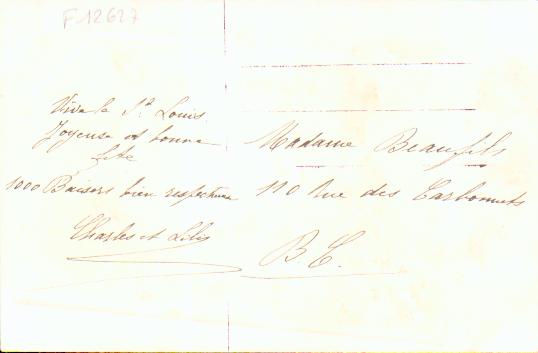 F12627
Vive la St Louis
Joyeuse et bonne
fête
1000 Baisers bien respectueux
Charles et Lily
Madame Beaufils
110 Rue des Carbonnets
B.C.